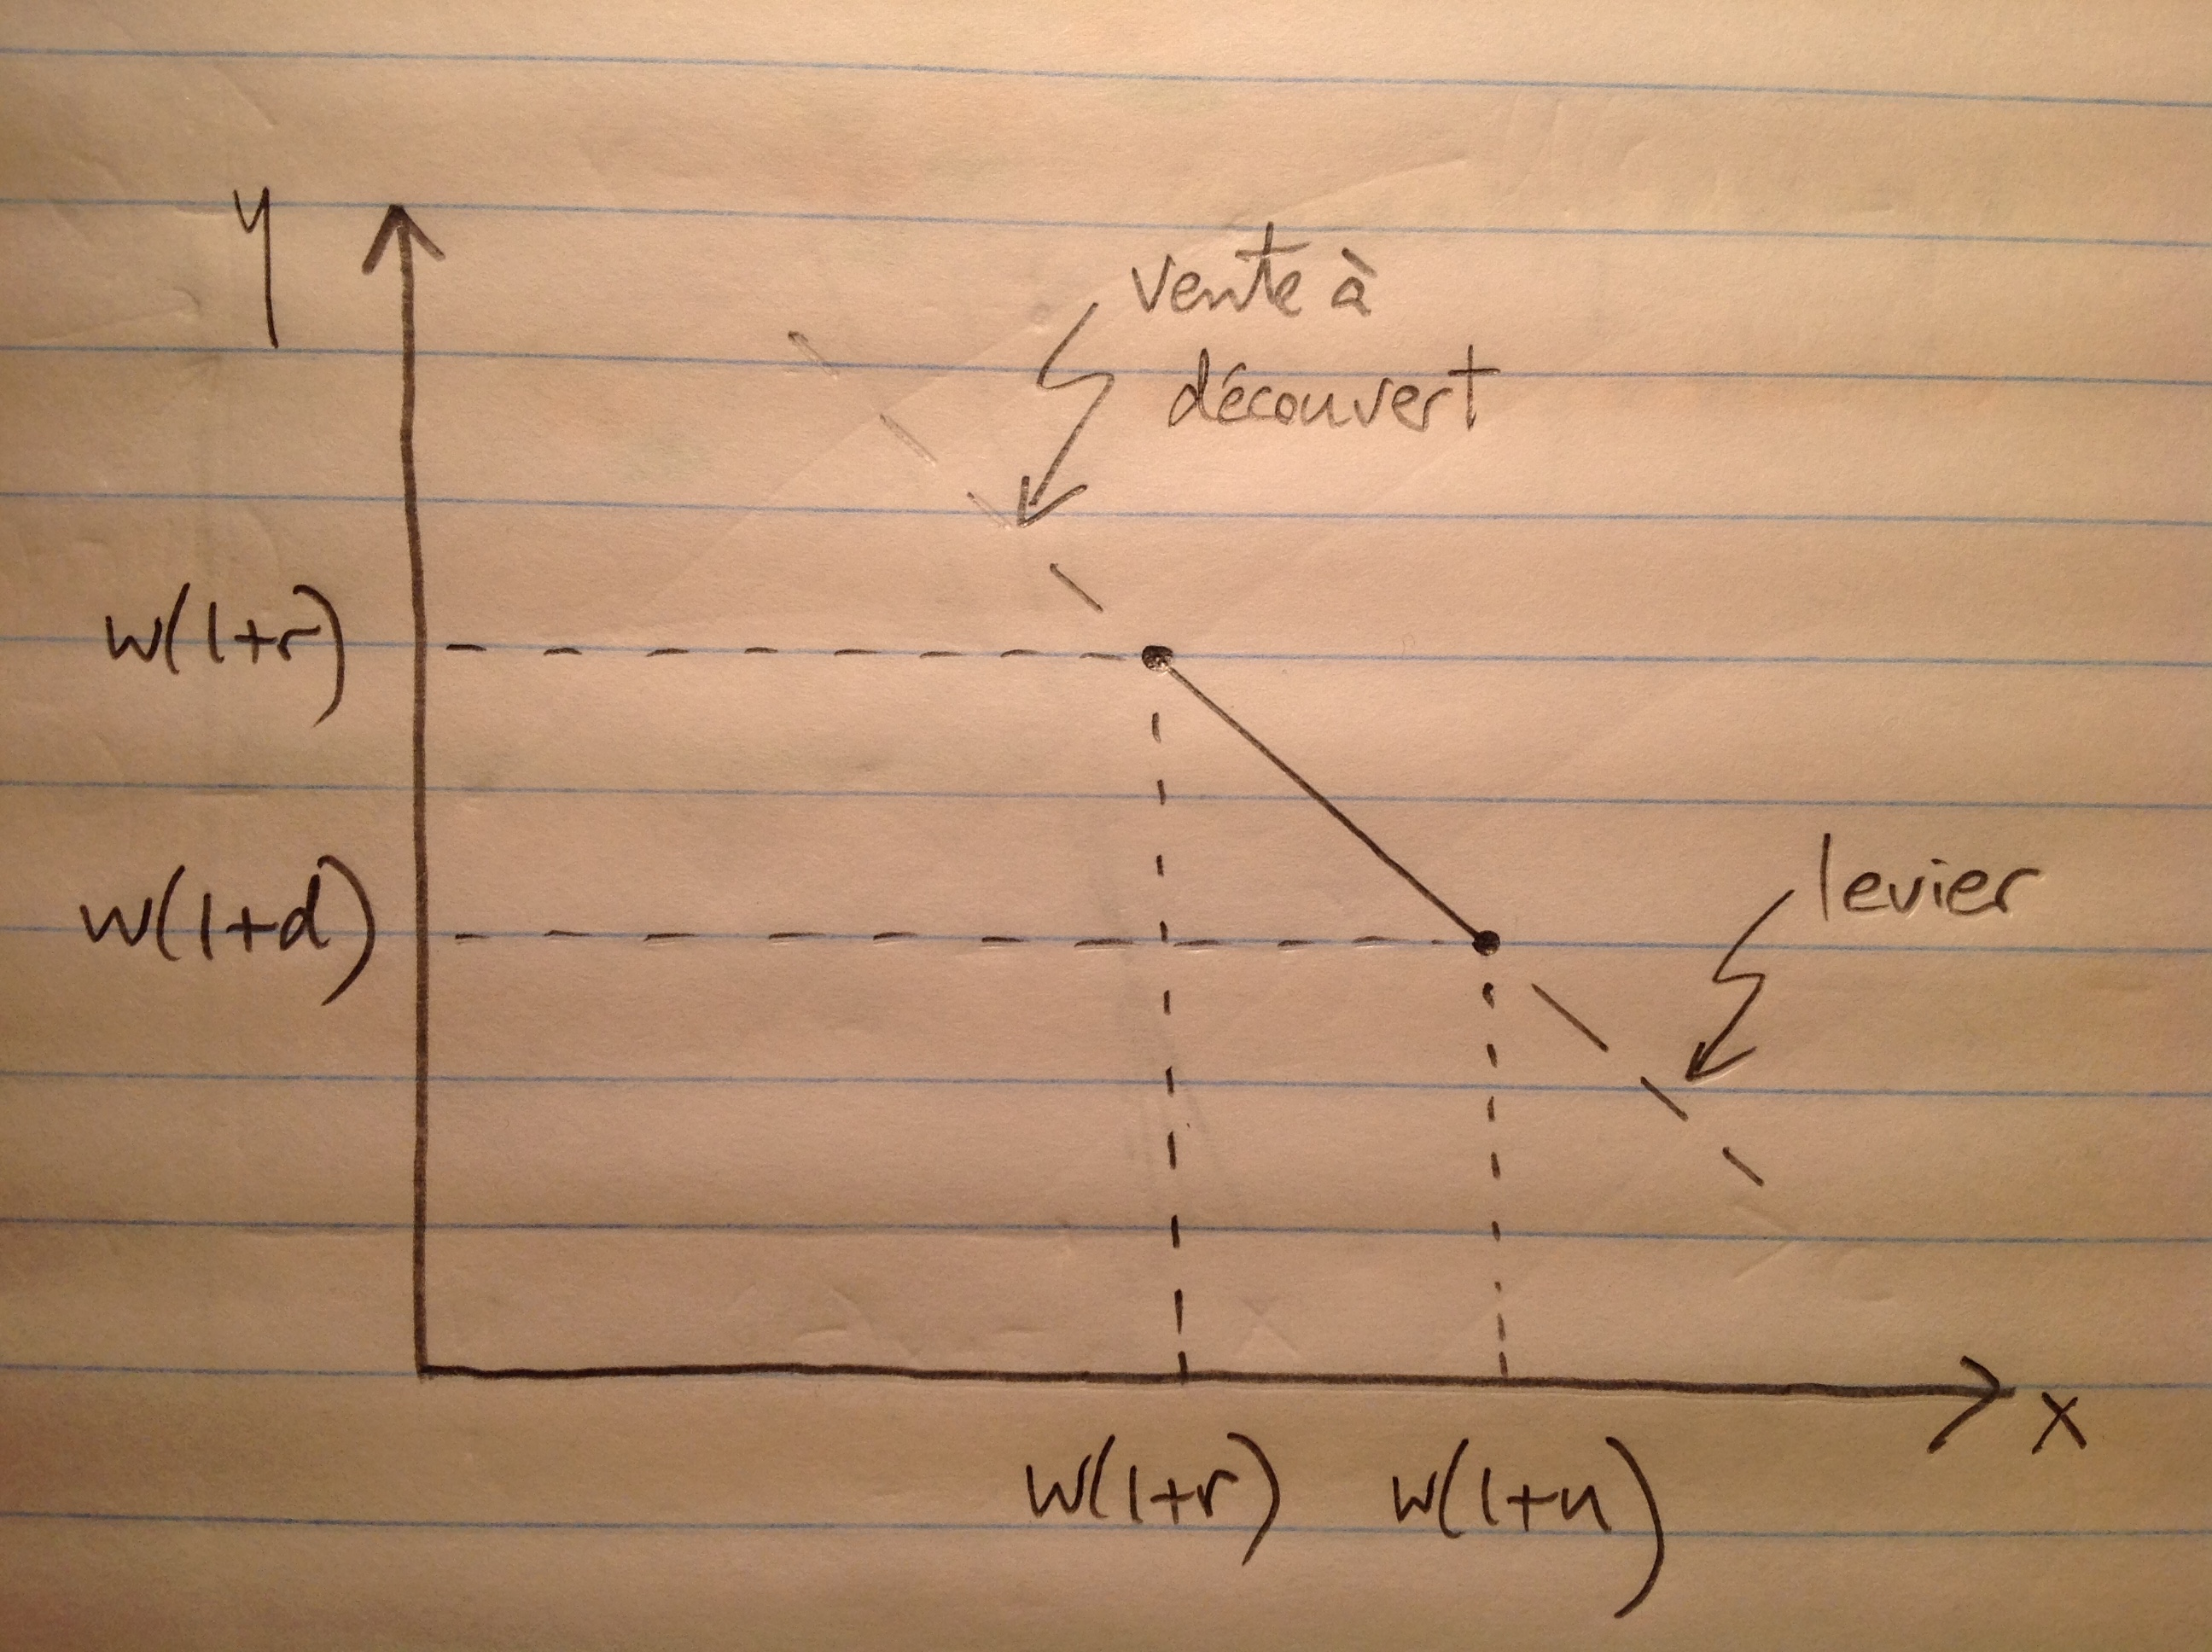 y
vente à
découvert
w(1+r)
w(1+d)
levier
x
w(1+r) w(1+u)